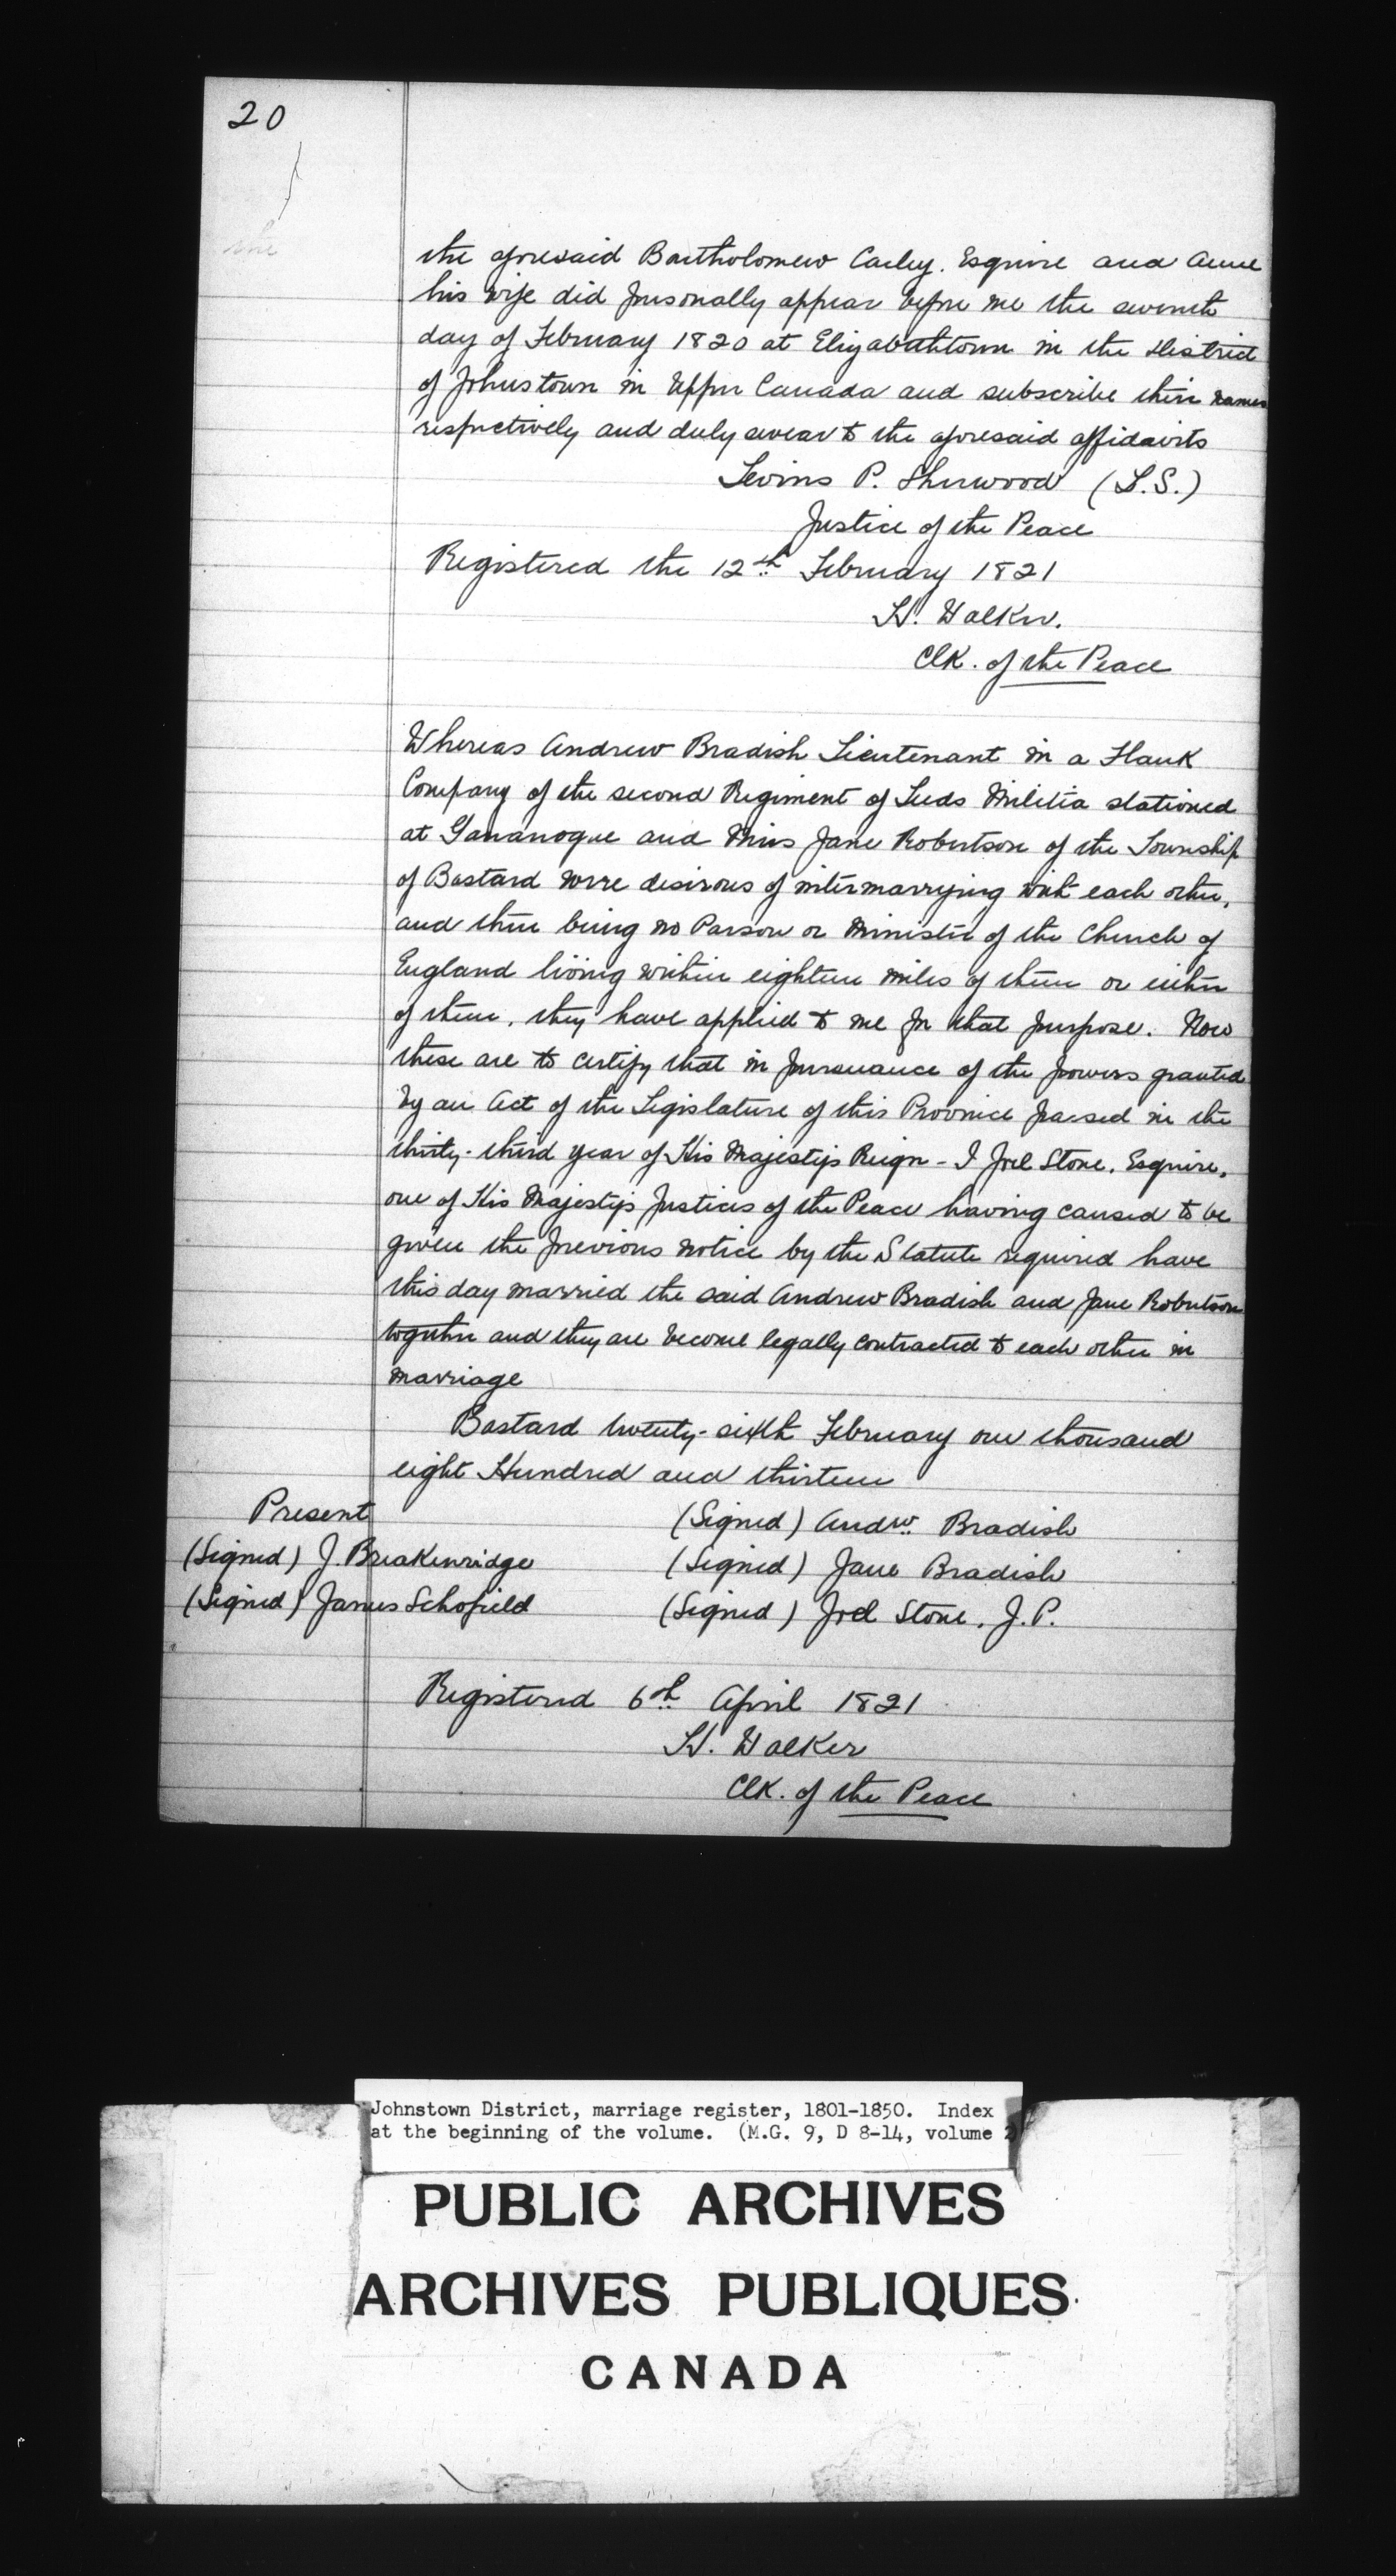 20
the
the aforesaid Bartholomew Carley. Esquire and Anne
his wife did personally appear before me the seventh
day of February 1820 at Elizabethtown in the District
of Johnstown in Upper Canada and subscribe their names
respectively and duly swear to the aforesaid affidavits
Levins P. Sherwood (L.S.)
Justice of the Peace
Registered the 12th February 1821
H. Walker.
Clk. of the Peace
Whereas Andrew Bradish Lieutenant in a Flank
Company of the second Regiment of Leeds Militia stationed
at Gananoque and Miss Jane Robertson of the Township
of Bastard were desirous of intermarrying with each other,
and there being no Parson or Minister of the Church of
England living within eighteen miles of them or either
of them, they have applied to me for that purpose. Now
these are to certify that in pursuance of the powers granted
by an Act of the Legislature of this Province passed in the
thirty-third year of His Majestys Reign - I Joel Stone, Esquire,
one of His Majestys Justices of the Peace having caused to be
given the previous notice by the Statute required have
this day married the said Andrew Bradish and Jane Robertson
together and they are become legally contracted to each other in
marriage
Bastard twenty-sixth February one thousand
eight Hundred and thirteen
Present
(Signed) Andw. Bradish
(Signed) J. Breakenridge
(Signed) Jane Bradish
(Signed) James Schofield
(Signed) Joel Stone, J.P.
Registered 6th April 1821
H. Walker
Clk. of the Peace
Johnstown District, marriage register, 1801-1850. Index
at the beginning of the volume. (M.G. 9, D 8-14, volume 2)
PUBLIC ARCHIVES
ARCHIVES PUBLIQUES
CANADA